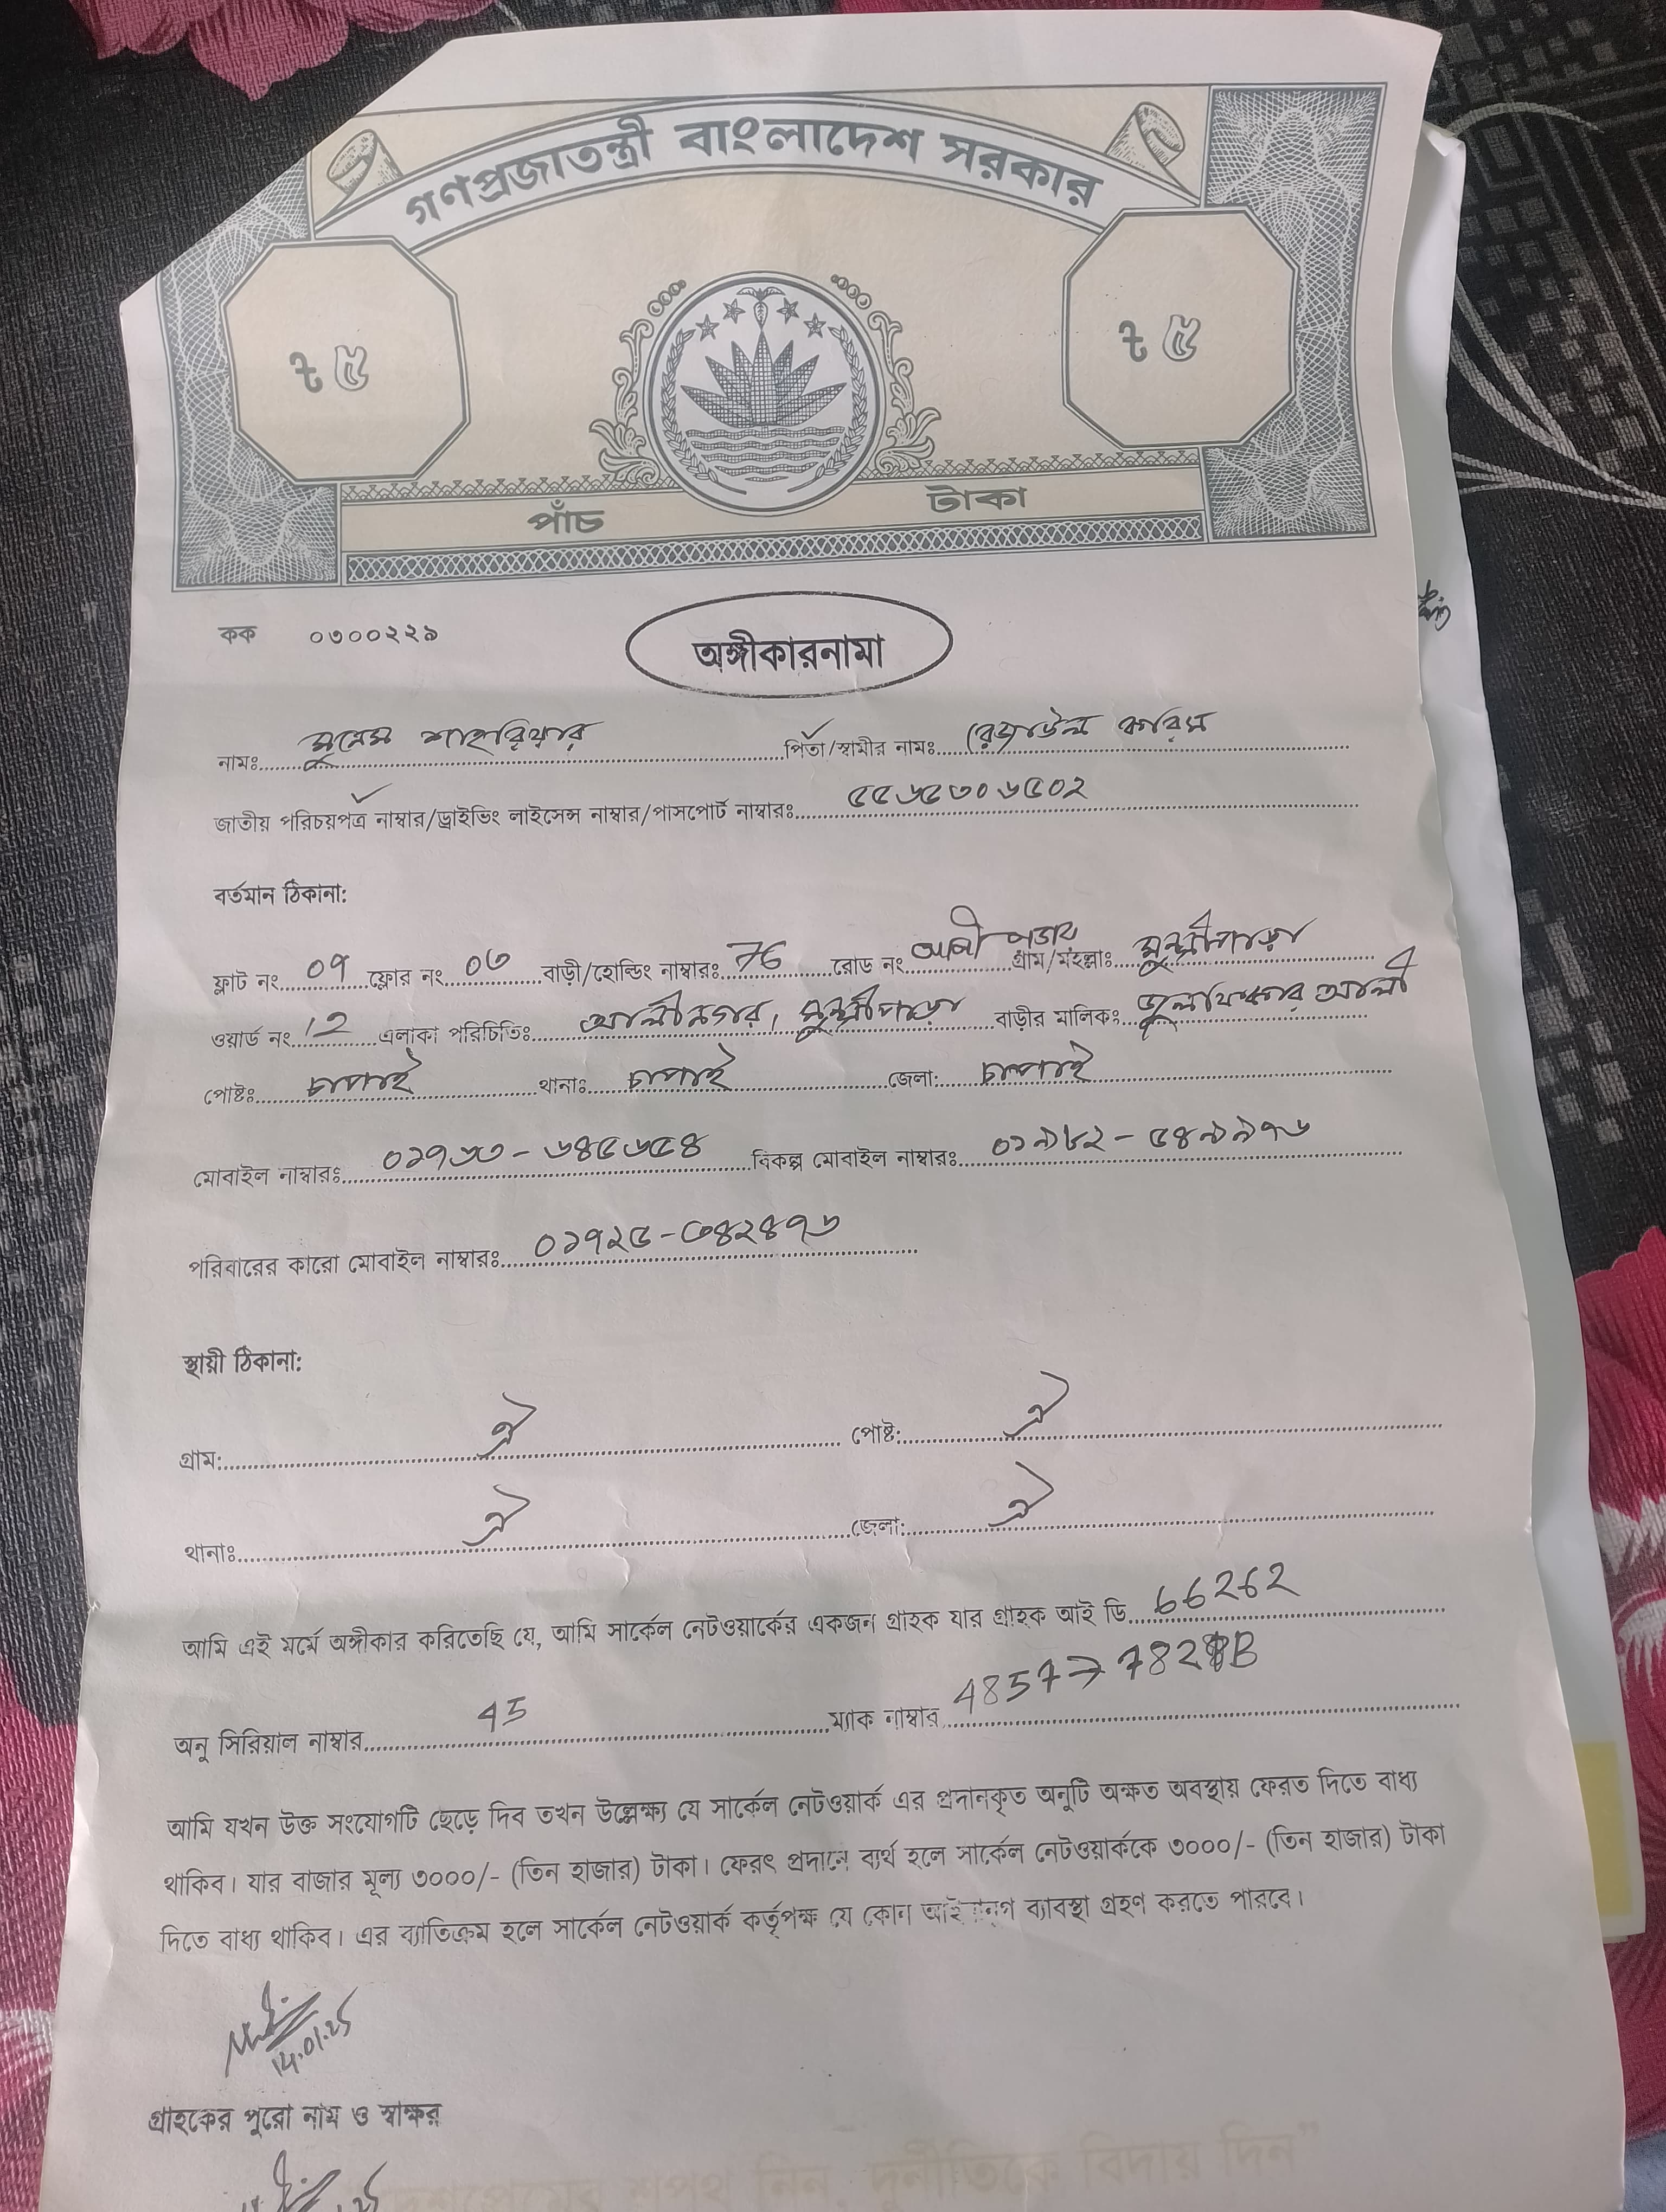 গণপ্রজাতন্ত্রী বাংলাদেশ সরকার
৳ ৫ ৳ ৫
পাঁচ টাকা
কক ০৩০০২২৯
অঙ্গীকারনামা
নামঃ শাহরিয়ার পিতা/স্বামীর নামঃ রেজাউল করিম
জাতীয় পরিচয়পত্র নাম্বার/ড্রাইভিং লাইসেন্স নাম্বার/পাসপোর্ট নাম্বারঃ ৫৫৬৫৩০৬৫০২
বর্তমান ঠিকানা:
ফ্লাট নং ০৭ ফ্লোর নং ০৩ বাড়ী/হোল্ডিং নাম্বারঃ 76 রোড নং গ্রাম/মহল্লাঃ মুন্সীপাড়া
ওয়ার্ড নং 12 এলাকা পরিচিতিঃ আলীনগর, মুন্সীপাড়া বাড়ীর মালিকঃ জুলফিকার আলী
পোষ্টঃ চাপাই থানাঃ চাপাই জেলা: চাপাই
মোবাইল নাম্বারঃ ০১৭৩৩-৬৪৫৬৫৪ বিকল্প মোবাইল নাম্বারঃ ০১৯৮২-৫৪৯৯৭৬
পরিবারের কারো মোবাইল নাম্বারঃ ০১৭২৫-৩৪২৪৭৬
স্থায়ী ঠিকানা:
গ্রাম: ঐ পোষ্ট: ঐ
থানাঃ ঐ জেলা: ঐ
আমি এই মর্মে অঙ্গীকার করিতেছি যে, আমি সার্কেল নেটওয়ার্কের একজন গ্রাহক যার গ্রাহক আই ডি 66262
অনু সিরিয়াল নাম্বার 45 ম্যাক নাম্বার 4857→
আমি যখন উক্ত সংযোগটি ছেড়ে দিব তখন উল্লেক্ষ্য যে সার্কেল নেটওয়ার্ক এর প্রদানকৃত অনুটি অক্ষত অবস্থায় ফেরত দিতে বাধ্য
থাকিব। যার বাজার মূল্য ৩০০০/- (তিন হাজার) টাকা। ফেরৎ প্রদানে ব্যর্থ হলে সার্কেল নেটওয়ার্ককে ৩০০০/- (তিন হাজার) টাকা
দিতে বাধ্য থাকিব। এর ব্যাতিক্রম হলে সার্কেল নেটওয়ার্ক কর্তৃপক্ষ যে কোন ব্যাবস্থা গ্রহণ করতে পারবে।
14.01.25
গ্রাহকের পুরো নাম ও স্বাক্ষর
দেশপ্রেমের শপথ নিন, দুর্নীতিকে বিদায় দিন"